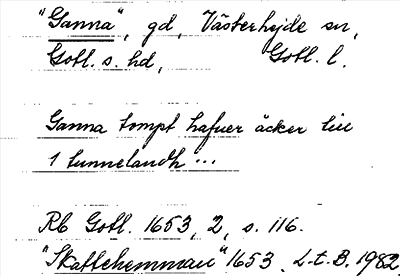 "Ganna", gd, Västerhejde sn,
Gotl. s. hd, Gotl. l.
Ganna tompt hafuer äcker till
1 tunnelandh ...
Rb Gotl. 1653, 2, s. 116.
"Skattehemman" 1653. L.t.B. 1982.